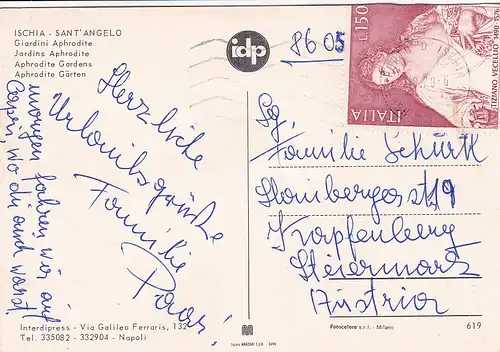 ISCHIA - SANT'ANGELO
Giardini Aphrodite
Jardins Aphrodite
Aphrodite Gardens
Aphrodite Gärten
idp
8605
L.150
ITALIA
TIZIANO VECELLIO
Herzliche
Urlaubsgrüße
Familie
morgen fahren wir auf
Capri, wo du auch warst!
Sg.
Familie
19
Kapfenberg
Steiermark
Austria
Interdipress - Via Galileo Ferraris, 132
Tel. 335082 - 332904 - Napoli
Fotocelere s.r.l. - Milano
619